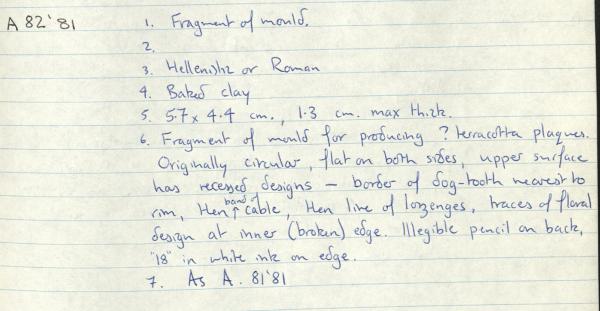 A 82'81
1. Fragment of mould.
2.
3. Hellenistic or Roman
4. Baked clay
5. 5.7 x 4.4 cm., 1.3 cm. max thick.
6. Fragment of mould for producing ? terracotta plaques.
Originally circular, flat on both sides, upper surface
has recessed designs – border of dog-tooth nearest to
rim, then band of cable, then line of lozenges, traces of floral
design at inner (broken) edge. Illegible pencil on back,
"18" in white ink on edge.
7. As A. 81'81